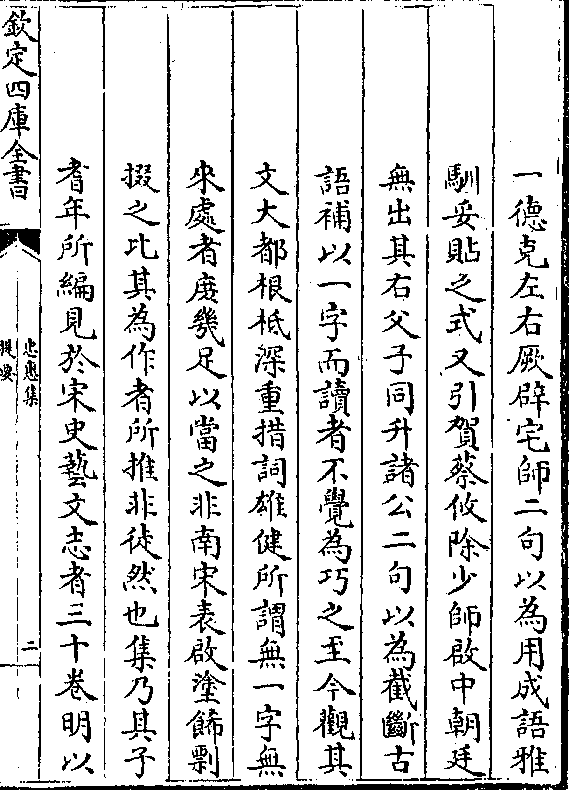 一德克左右厥辟宅師二句以為用成語雅
馴妥貼之式又引賀蔡攸除少師啟中朝廷
無出其右父子同升諸公二句以為截斷古
語補以一字而讀者不覺為巧之至今觀其
文大都根柢深重措詞雄健所謂無一字無
來處者庻幾足以當之非南宋表啟塗飾剽
掇之比其為作者所推非徒然也集乃其子
耆年所編見於宋史藝文志者三十卷明以
欽定四庫全書
忠惠集
提要
二